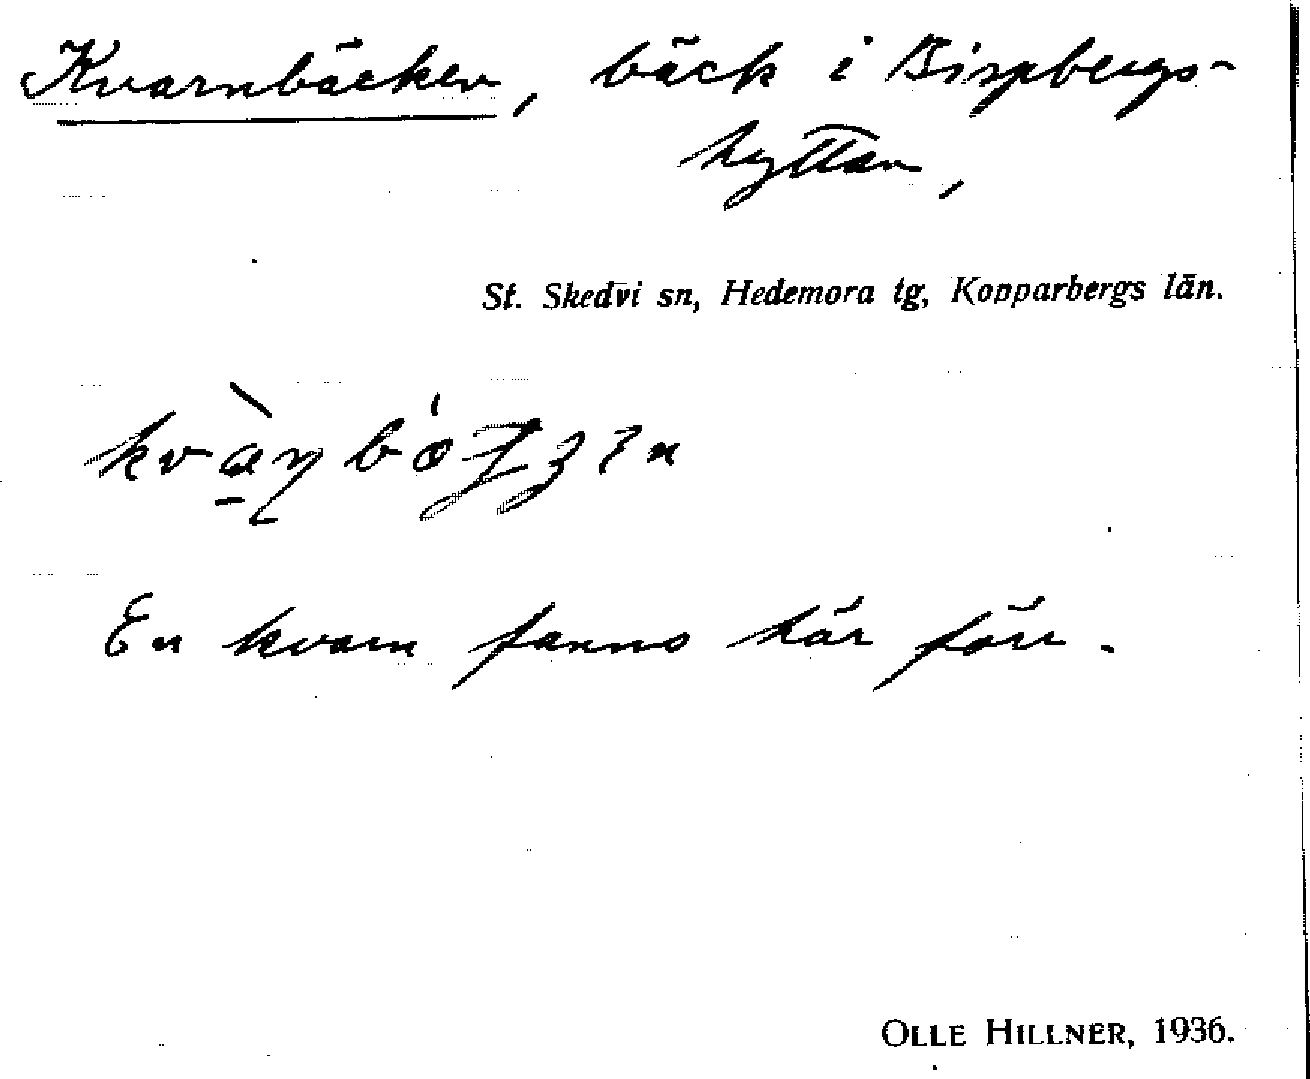 Kvarnbäcken, bäck i Bispbergs-
hyttan,
St. Skedvi sn, Hedemora tg, Kopparbergs län.
En kvarn fanns här förr.
OLLE HILLNER, 1936.